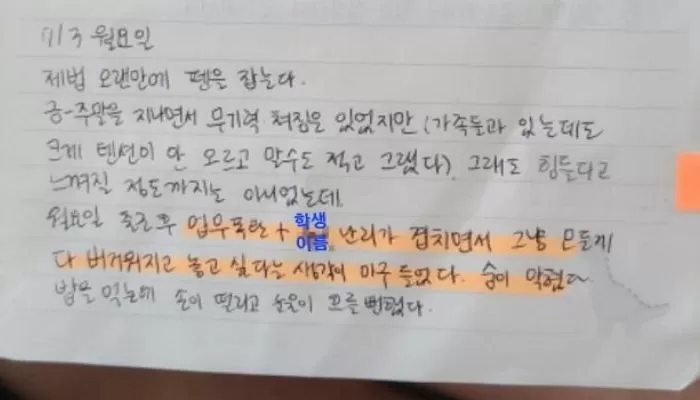 7/3 월요일
제법 오랜만에 펜을 잡는다.
금-주말을 지나면서 무기력 쳐짐은 있었지만 (가족들과 있는데도
크게 텐션이 안 오르고 말수도 적고 그랬다). 그래도 힘들다고
느껴질 정도까지는 아니었는데.
월요일 출근 후 업무폭탄 + 학생이름 난리가 겹치면서 그냥 모든게
다 버거워지고 놓고 싶다는 생각이 마구 들었다. 숨이 막혔다.
밥을 먹는데 손이 떨리고 눈물이 흐를 뻔했다.